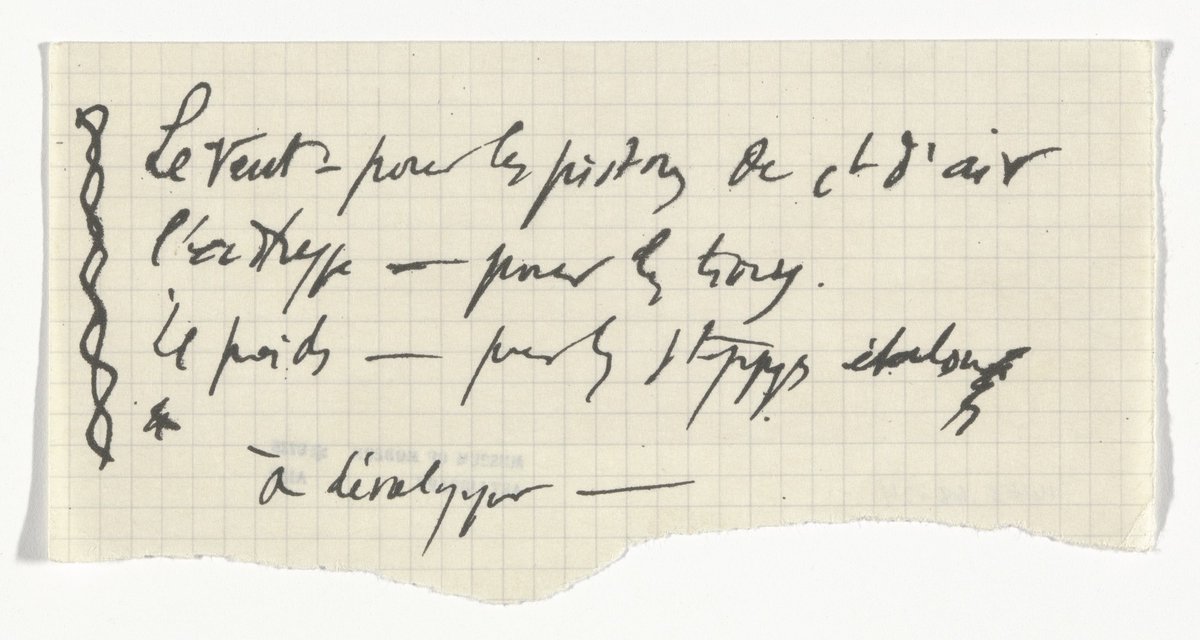 Le Vent – pour les pistons de ct d'air
l'adresse — pour les trous.
Le poids — pour les stoppages étalons
à développer —